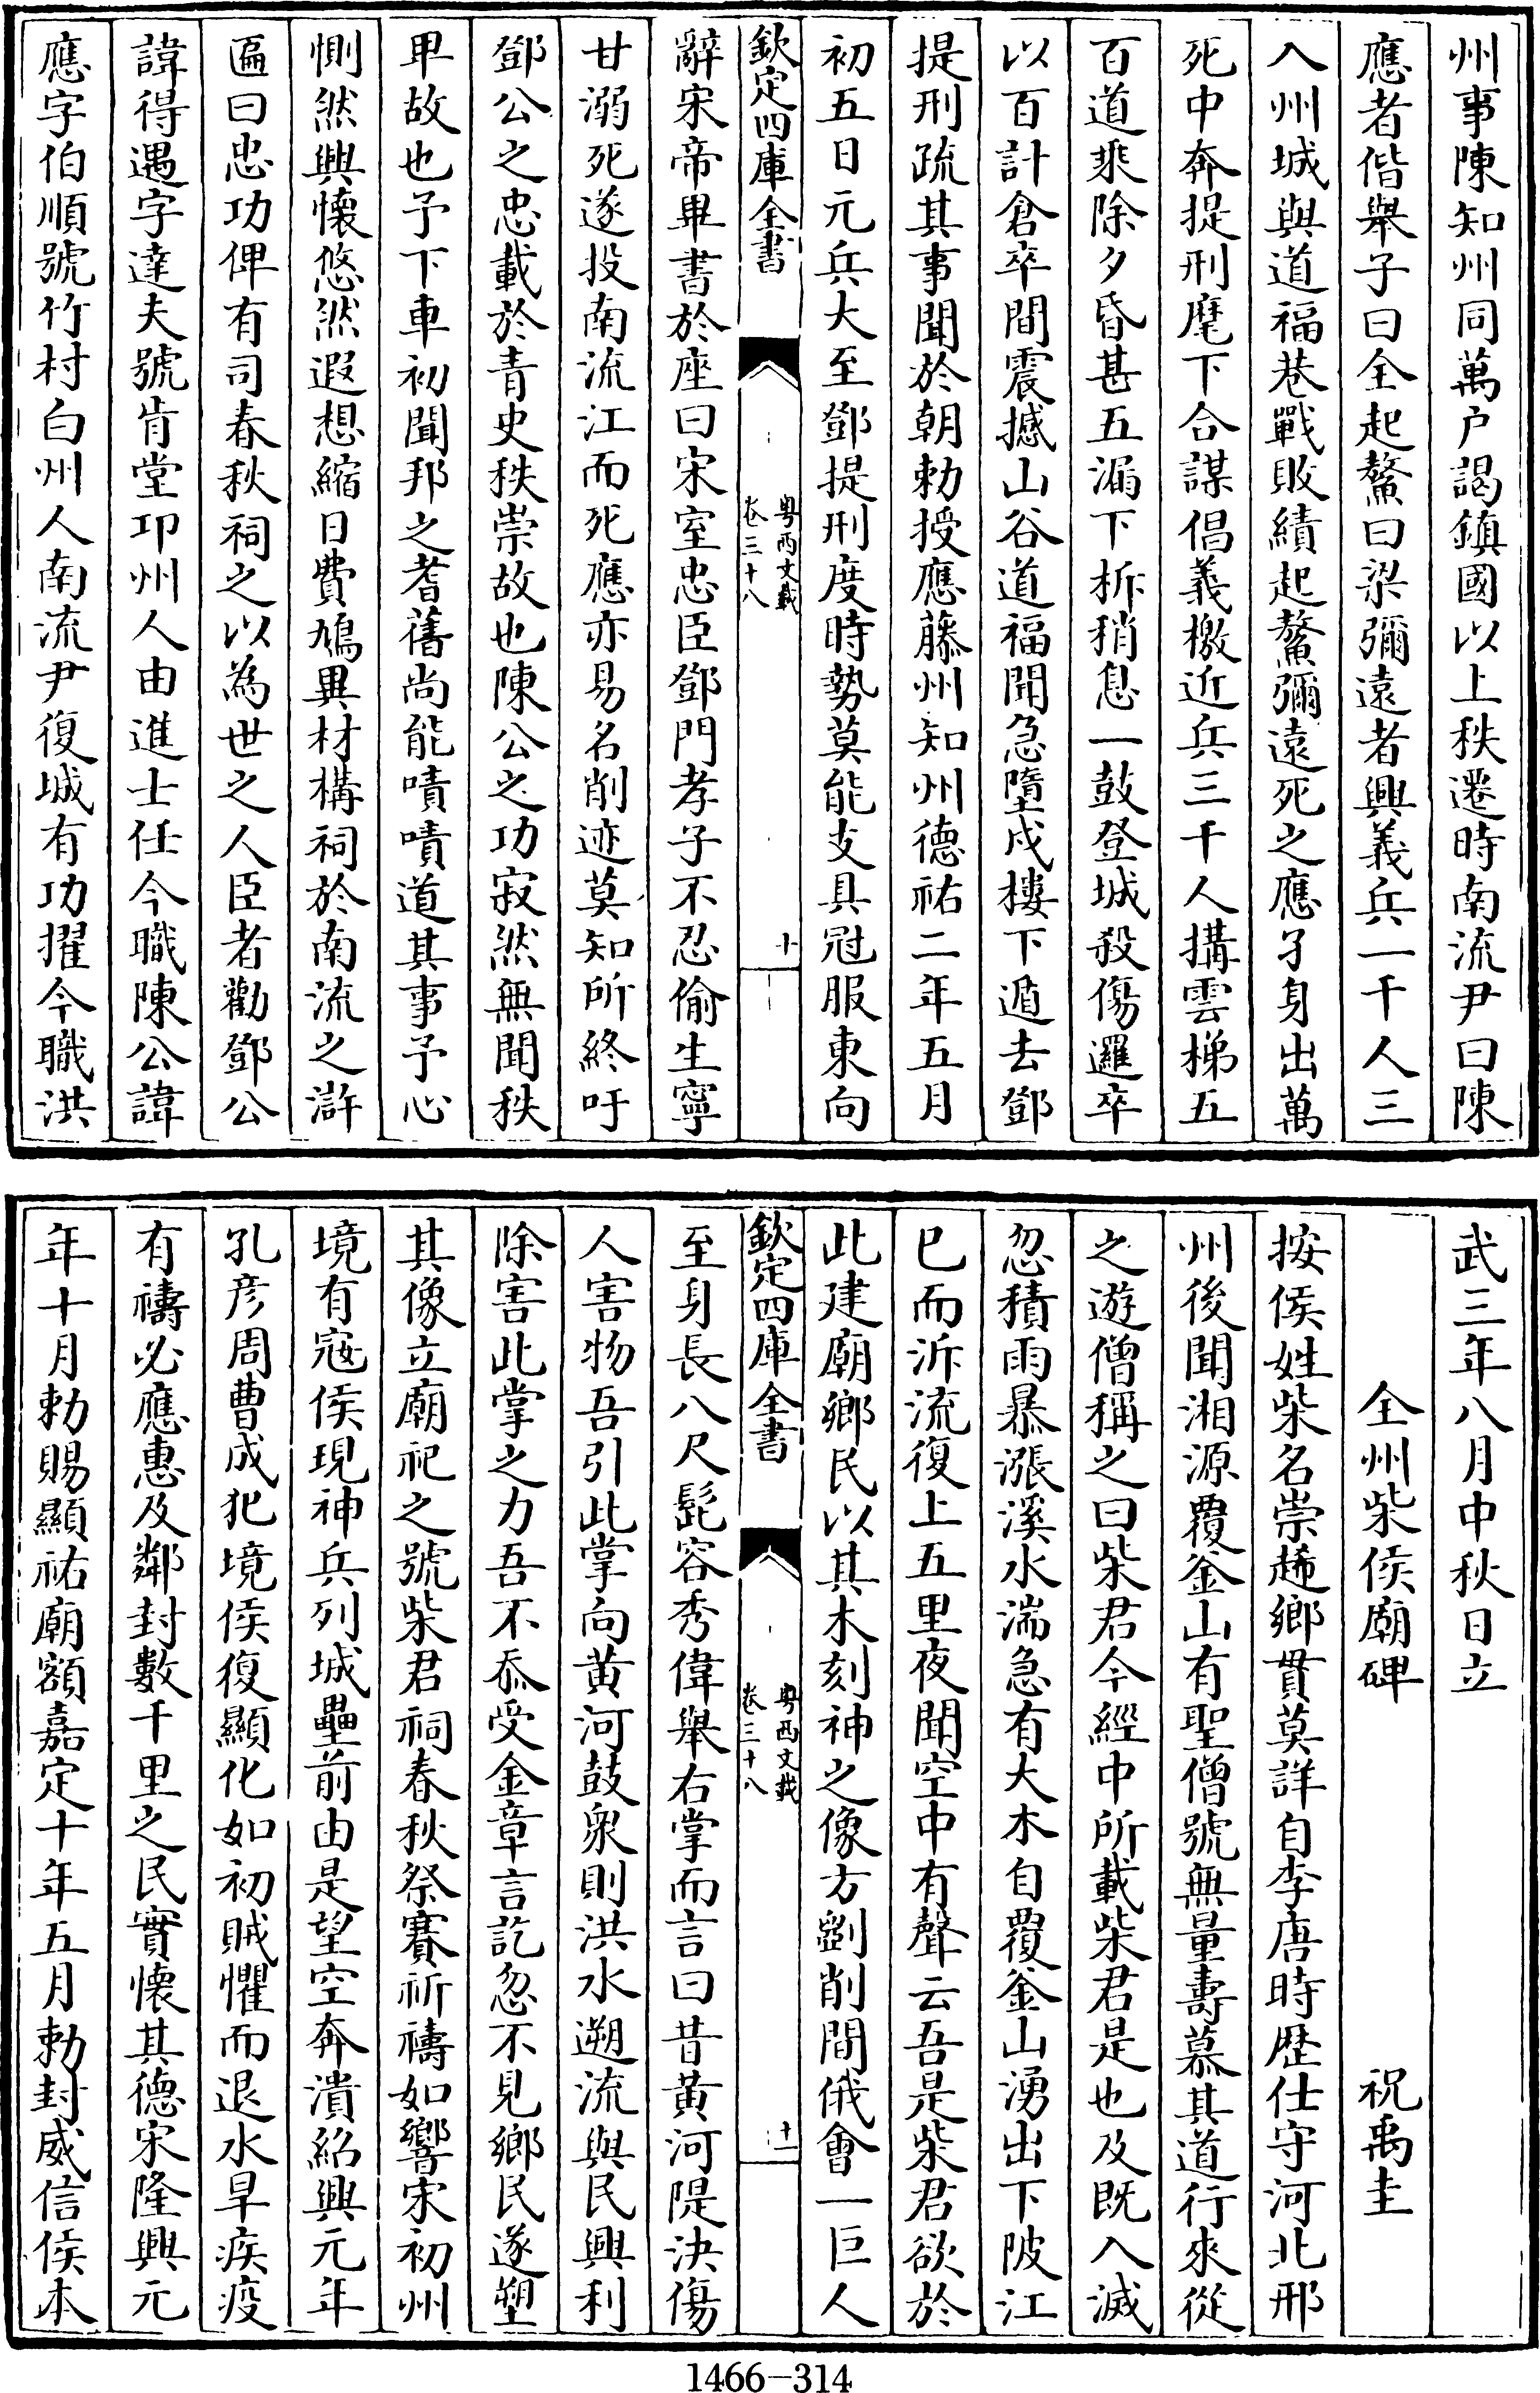 州事陳知州同萬户謁鎮國以上秩遷時南流尹曰陳
應者偕舉子曰全起鰲曰梁彌遠者興義兵一千人三
入州城與道福巷戰敗績起鰲彌遠死之應孑身出萬
死中奔提刑麾下合謀倡義檄近兵三千人搆雲梯五
百道乘除夕昏甚五漏下柝稍息一鼓登城殺傷邏卒
以百計倉卒間震撼山谷道福聞急墮戍樓下遁去鄧
提刑疏其事聞於朝勅授應藤州知州德祐二年五月
初五日元兵大至鄧提刑度時勢莫能支具冠服東向
欽定四庫全書
粤西文載
卷三十八
十
辭宋帝畢書於座曰宋室忠臣鄧門孝子不忍偷生寧
甘溺死遂投南流江而死應亦易名削迹莫知所終吁
鄧公之忠載於青史秩崇故也陳公之功寂然無聞秩
卑故也予下車初聞邦之耆舊尚能嘖嘖道其事予心
惻然興懷悠然遐想縮日費鳩異材構祠於南流之滸
匾曰忠功俾有司春秋祠之以為世之人臣者勸鄧公
諱得遇字達夫號肯堂邛州人由進士任今職陳公諱
應字伯順號竹村白州人南流尹復城有功擢今職洪
武三年八月中秋日立
全州柴侯廟碑　祝禹圭
按侯姓柴名崇䞱鄉貫莫詳自李唐時歴仕守河北邢
州後聞湘源覆釜山有聖僧號無量壽慕其道行來從
之遊僧稱之曰柴君今經中所載柴君是也及既入滅
忽積雨暴漲溪水湍急有大木自覆釜山湧出下陂江
巳而泝流復上五里夜聞空中有聲云吾是柴君欲於
此建廟鄉民以其木刻神之像方劉削間俄會一巨人
欽定四庫全書
粤西文載
卷三十八
十一
至身長八尺髭容秀偉舉右掌而言曰昔黄河隄決傷
人害物吾引此掌向黄河鼓衆則洪水遡流與民興利
除害此掌之力吾不忝受金章言訖忽不見鄉民遂塑
其像立廟祀之號柴君祠春秋祭賽祈禱如響宋初州
境有寇侯現神兵列城壘前由是望空奔潰紹興元年
孔彦周曹成犯境侯復顯化如初賊懼而退水旱疾疫
有禱必應惠及鄰封數千里之民實懷其德宋隆興元
年十月勅賜顯祐廟額嘉定十年五月勅封威信侯本
1466-314